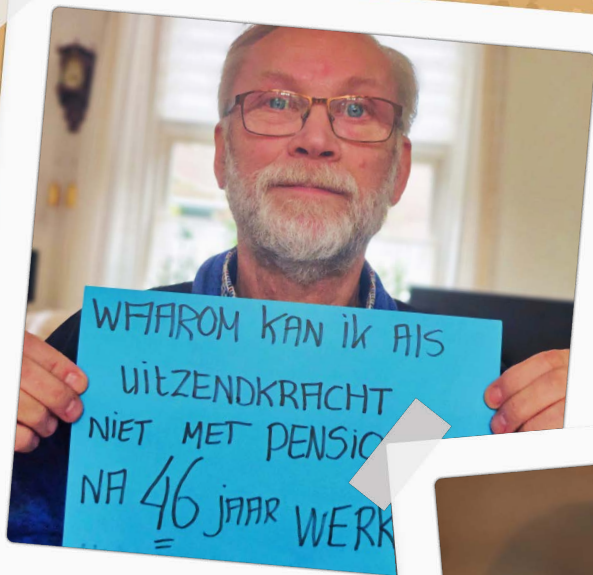 WAAROM KAN ik AlS
UitZENDKRACHT
NiET MET PENSiO
NA 46 jAAR WERK